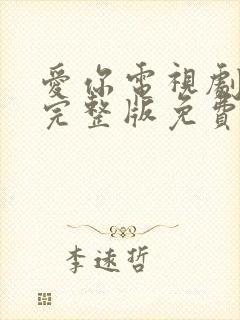 愛你電視劇
完整版免費
李遠哲